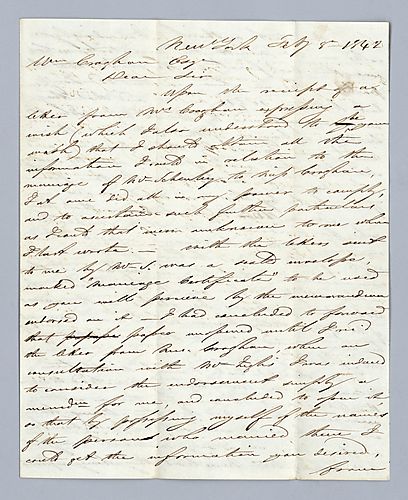 New York Feby 8th 1842
Wm Croghan Esqr
Dear Sir
Upon the receipt of a
letter from Mr Croghan expressing a
wish (which I also understood to be your
wish) that I should obtain all the
information I could in relation to the
marriage of Mr Schenley to Miss Croghan,
I at once did all in my power to comply,
and to ascertain such further particulars
as I could that were unknown to me when
I last wrote — with the letters sent
to me by Mr S. was a sealed envelope,
marked "marriage Certificate" to be used
as you will perceive by the memorandum
endorsed on it — I had concluded to forward
that paper unopened until I recd
the letter from Croghan, when on
consultation with Mr I was induced
to consider the endorsement simply a
for me, and concluded to open it
so that by possessing myself of the names
of the persons who married them I
could get the information you desired;